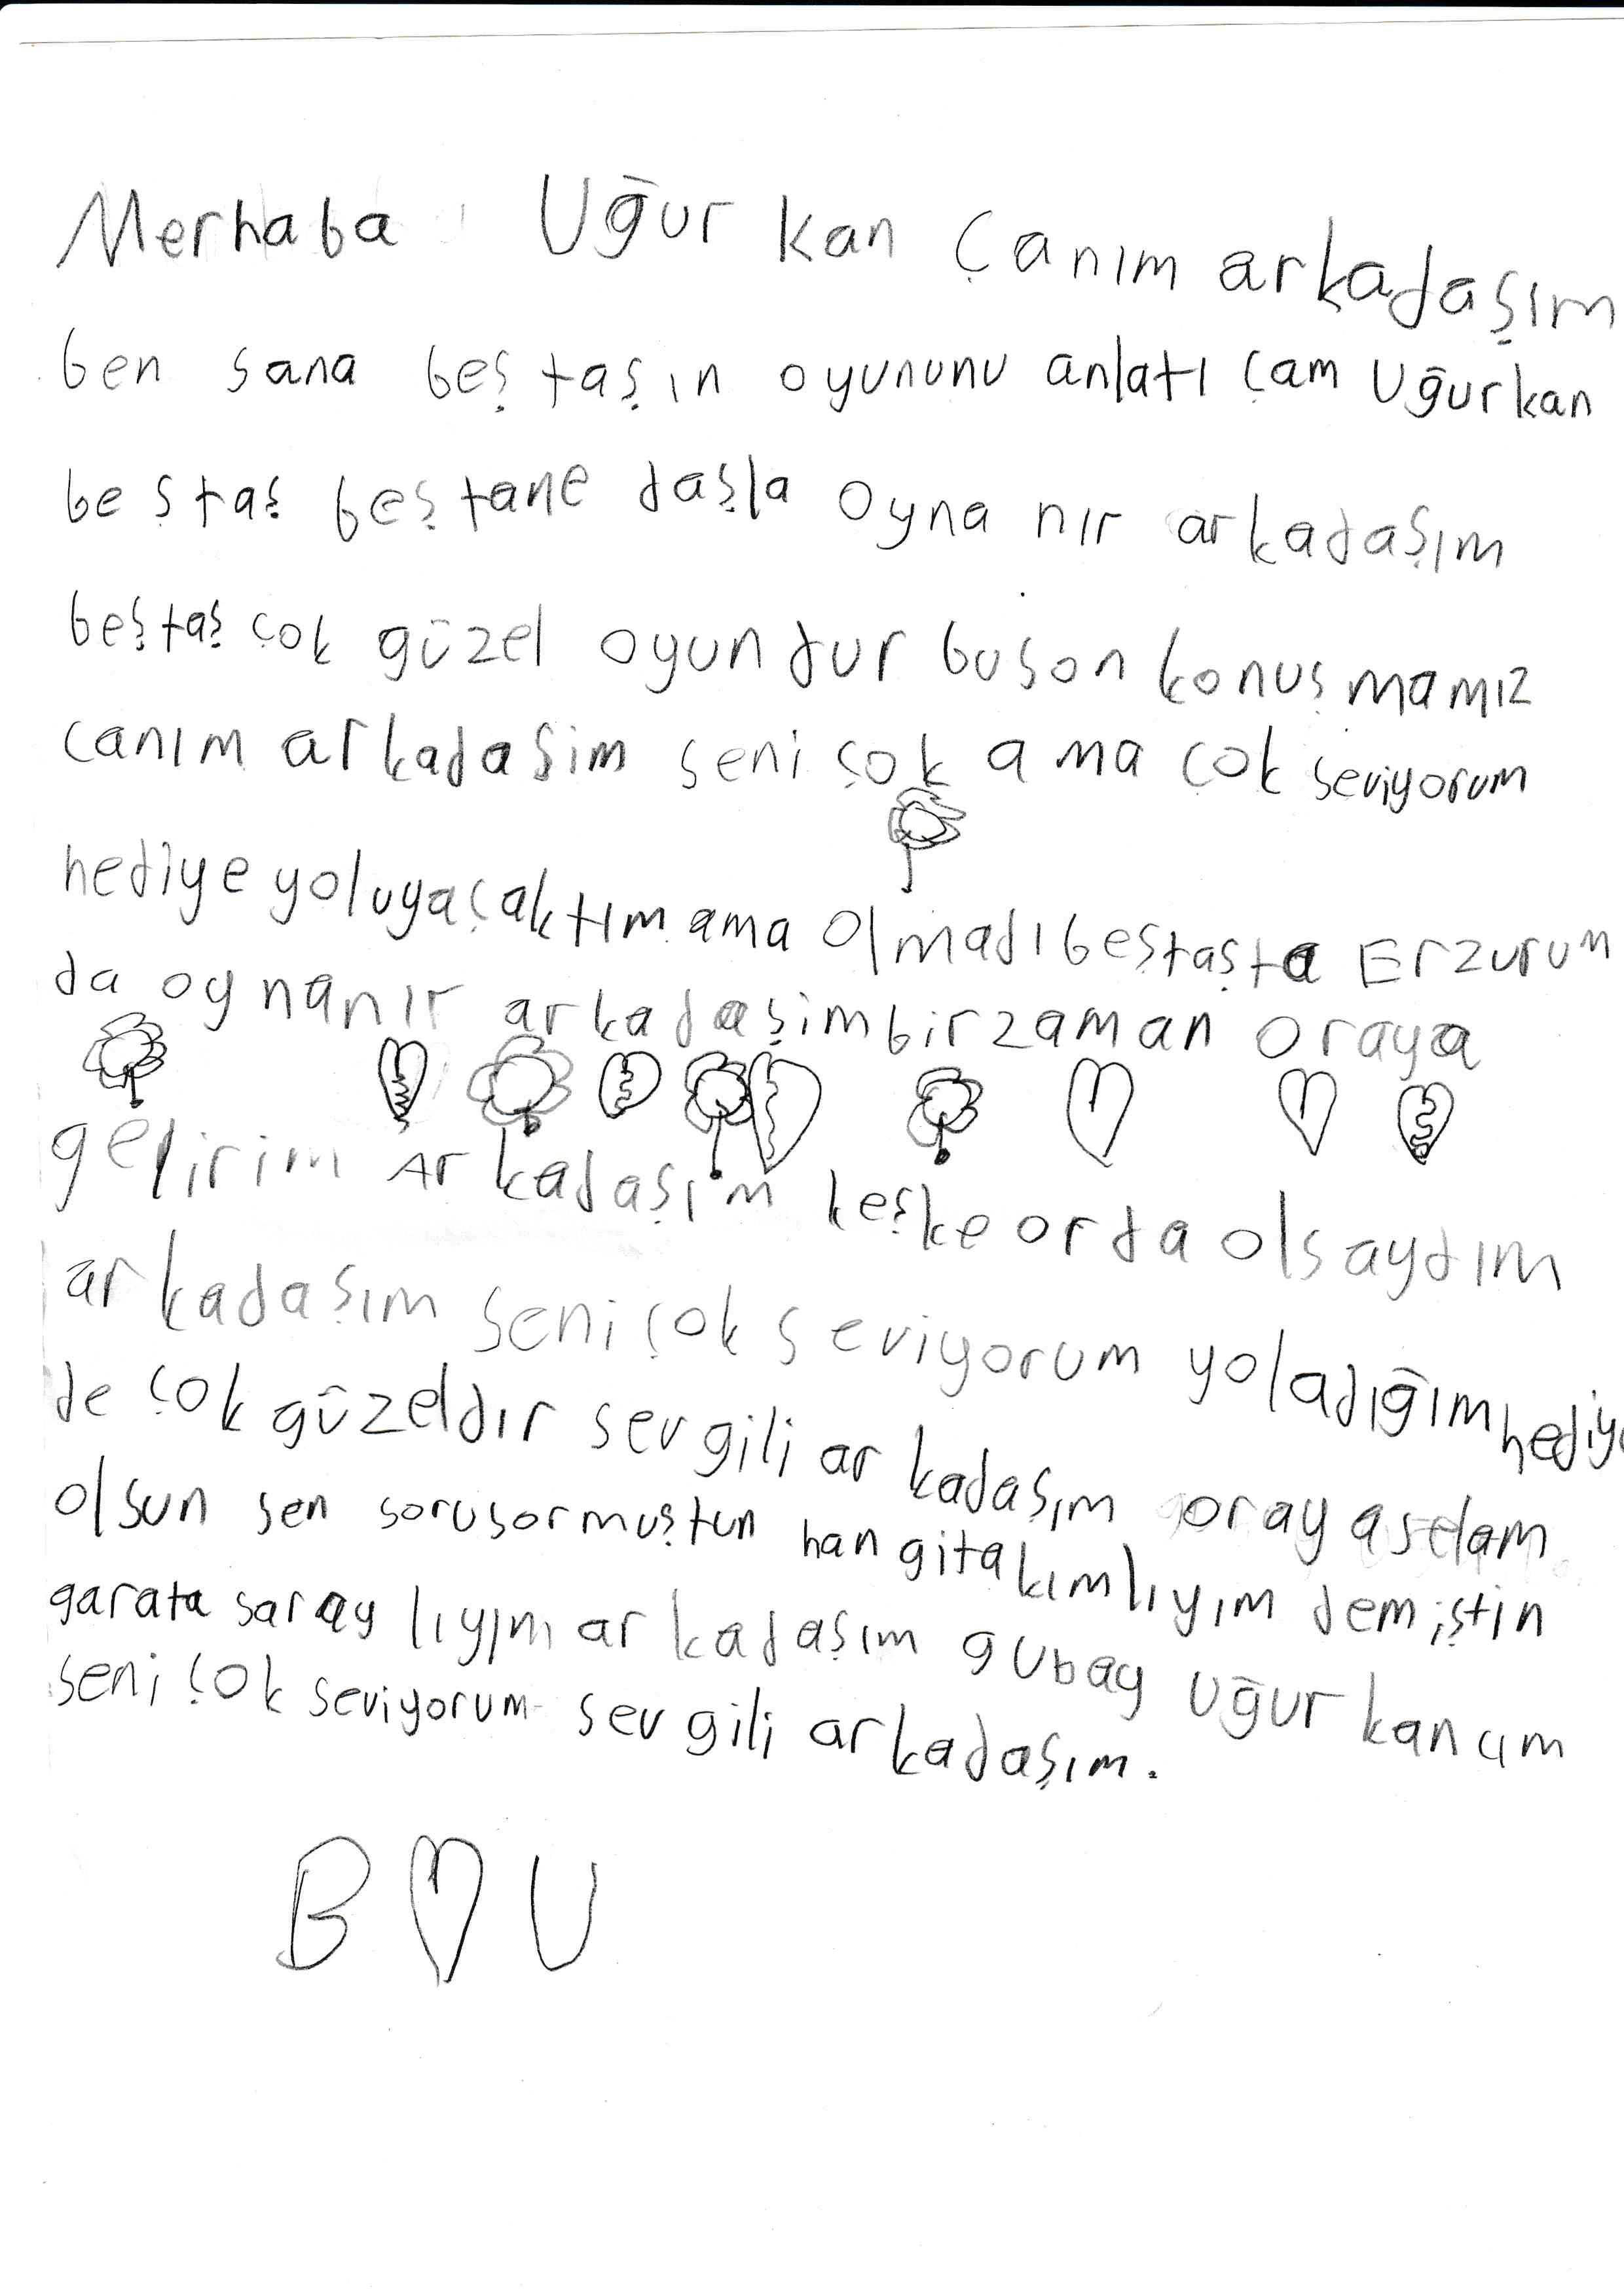 Merhaba Uğur kan Çanım arkadaşım
ben sana beş taşın oyununu anlatı çam Uğurkan
be ştaş beş tane daşla oyna nır arkadaşım
beştaş çok güzel oyundur buson konuşmamız
canım arkadaşim seni çok ama çok seviyorum
hediye yoluyaçaktım ama olmadı beştaşta Erzurum
da oynanır arkadaşim birzaman oraya
gelirim Arkadaşım keşke orda olsaydım
arkadaşım seni çok seviyorum yoladığım hediye
de çok güzeldır sevgili arkadaşım oraya selam
olsun sen sorusormuştun hangitakımlıyım demiştin
garata saray lıyım arkadaşım gubay Uğur kancım
seni çok seviyorum sevgili arkadaşım.
B U